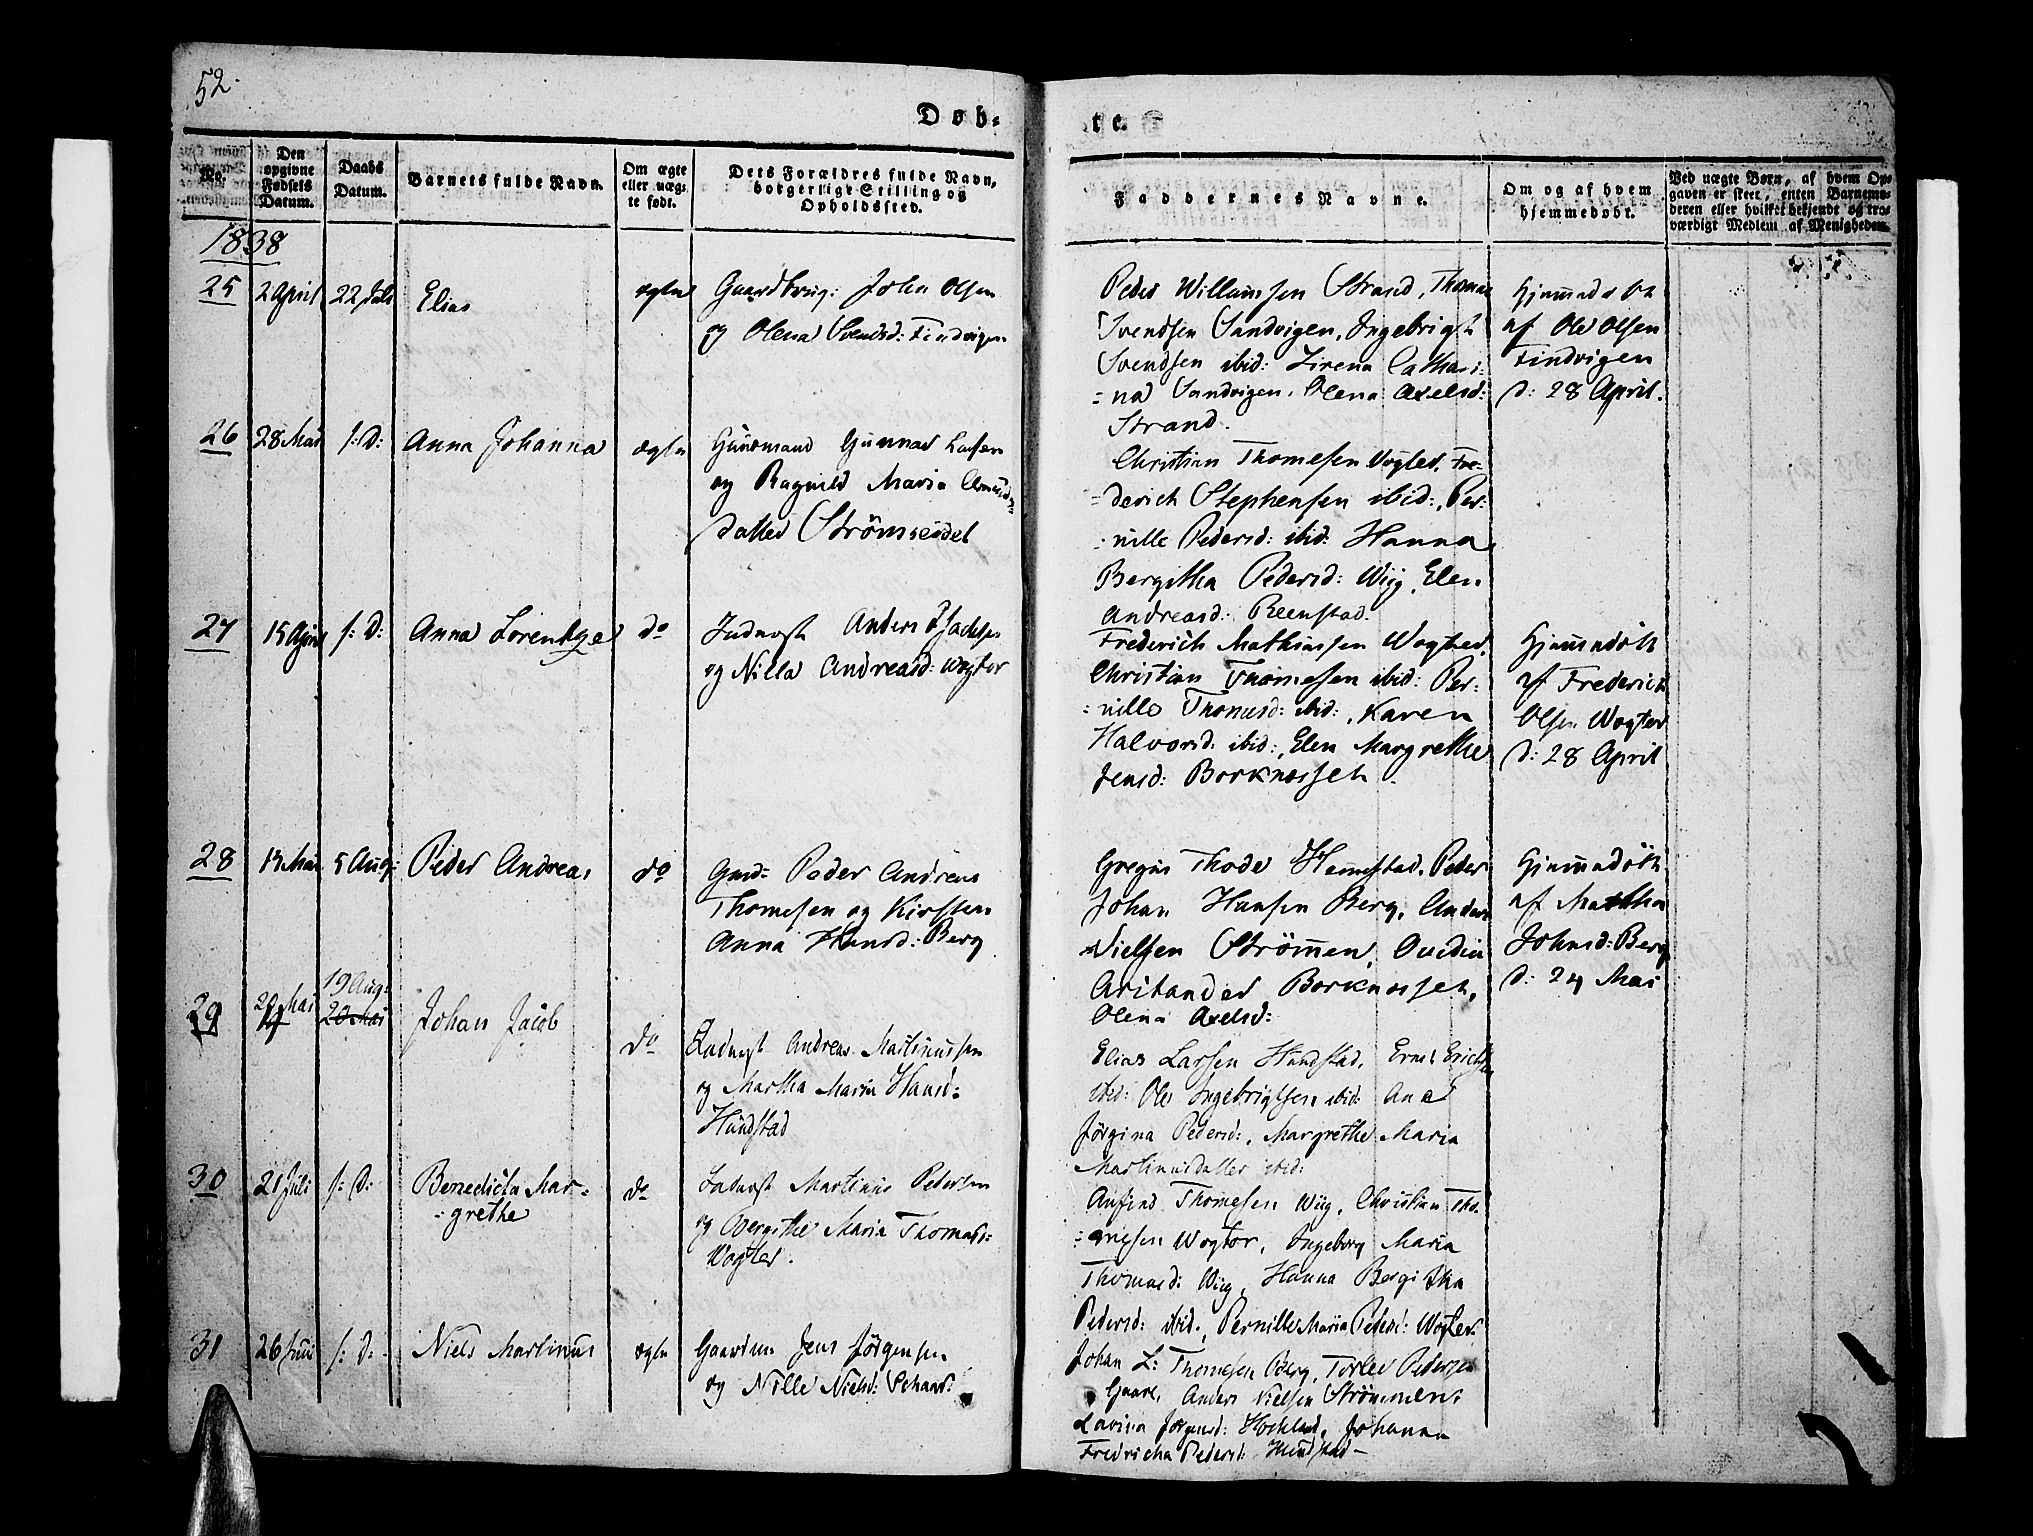 52.
Døb-
te.
No.
Den
opgivne
Fødsels
Datum.
Daabs
Datum.
Barnets fulde Navn.
Om ægte
eller uæg-
te født.
Dets Forældres fulde Navn,
borgerlige Stilling og
Opholdssted.
Faddernes Navne.
Om og af hvem
hjemmedøbt.
Ved uægte Børn, af hvem Op-
gaven er skeet, enten Barnemo-
deren eller hvilket bekjendt og tro-
værdigt Medlem af Menigheden.
1838
25
2 April
22 Juli
Elias
ægte
Gaardbrug: John Olsen
og Olena Svendsd: Findvigen
Peder Willumsen Strand, Thomas
Svendsen Sandvigen, Ingebrigt
Svendsen ibid: Zirena Cathari-
=na Sandvigen, Olena Axelsd:
Strand.
Hjemmedøbt
af Ole Olsen
Findvigen
d: 28 April.
26
28 Mai
s: D:
Anna Johanna
ægte
Huusmand Gunnar
og Ragnild Maria
datter
Christian Thomesen Vogter, Fre-
=derich Stephensen ibid:, Per-
=nille Pedersd: ibid: Hanna
Bergitha Pedersd: Wiig, Elen
Andreasd: Reenstad.
27
15 April
s: D:
Anna Lorentze
do
Inderst Anders
og Nilla Andreasd: Wogter
Frederich Mathiassen Wogter,
Christian Thomesen ibid: Per-
=nille Thomasd: ibid:, Karen
Halvorsd. ibid:, Elen Margrethe
Jensd: Borknæsset.
Hjemmedøbt
af Frederich
Olsen Wogter
d: 28 April
28
13 Mai
5 Aug:
Peder Andreas
do
Gmd: Peder Andreas
Thomesen og Kirsten
Anna Hansd: Berg
Gregus Thode Hemmestad, Peder
Johan Hansen Berg, Anders
Nielsen Strömmen, Ovedia
Aritander Borknæsset,
Olena Axelsd:
Hjemmedøbt
af Martha
Johnsd: Berg
d: 24 Mai
29
Mai
19 Aug:
20 Mai
Johan Jacob
do
Inderst Andreas Martinussen
og Martha Maria Hansd:
Hundstad
Elias Larsen Hundstad, Ernst Erichsen
ibid: Ole Ingebrigtsen ibid: Ane
Jörgina Pedersd:, Margrethe Maria
Martinusdatter ibid:
30
21 Juli
s: D:
Benedicta Mar-
=grethe
do
Inderst Martinus Pedersen
og Bergithe Maria Thomasd:
Wogter.
Anfind Thomesen Wiig, Christian Tho-
=mesen Wogter, Ingeborg Maria
Thomasd: Wiig, Hanna Bergitha
Pedersd: ibid., Pernille Maria Pedersd: Wogter.
31
26 Juni
s: D:
Niels Martinus
ægte
Gaardm. Jens Jörgensen
og Nille Nielsd:
Johan L: Thomesen Berg, Torlev Pedersen
Gaare, Anders Nielsen Strömmen,
Lavina Jörgensd: Hokland, Johanna
Fredricha Pedersd: Hundstad—